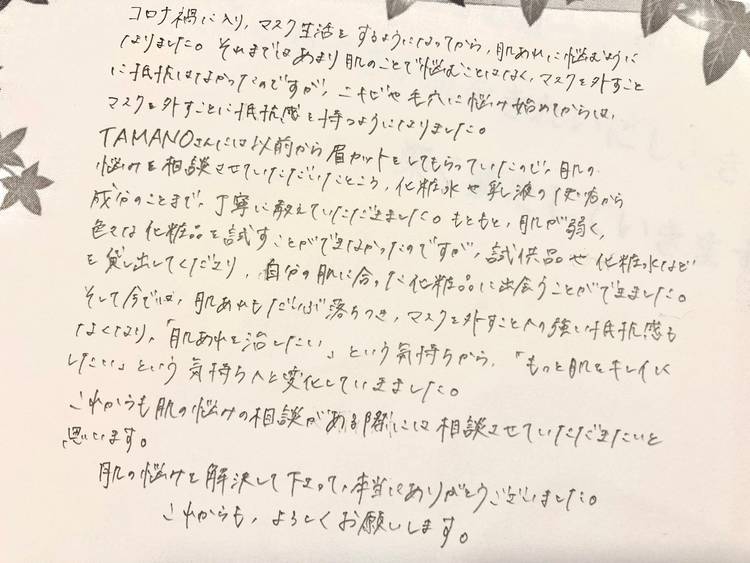 コロナ禍に入り、マスク生活をするようになってから、肌あれに悩むように
なりました。それまではあまり肌のことで悩むことはなく、マスクを外すこと
に抵抗はなかったのですが、ニキビや毛穴に悩み始めてからは、
マスクを外すことに抵抗感を持つようになりました。
TAMANOさんには以前から眉カットをしてもらっていたので、肌の
悩みを相談させていただいたところ、化粧水や乳液の使い方から
成分のことまで、丁寧に教えていただきました。もともと、肌が弱く、
色々な化粧品を試すことができなかったのですが、試供品や化粧水など
を貸し出してくださり、自分の肌に合った化粧品に出会うことができました。
そして今では、肌あれもだいぶ落ちつき、マスクを外すことへの強い抵抗感も
なくなり、「肌あれを治したい」という気持ちから、「もっと肌をキレイに
したい」という気持ちへと変化していきました。
これからも肌の悩みの相談がある際には相談させていただきたいと
思います。
肌の悩みを解決して下さって、本当にありがとうございました。
これからも、よろしくお願いします。